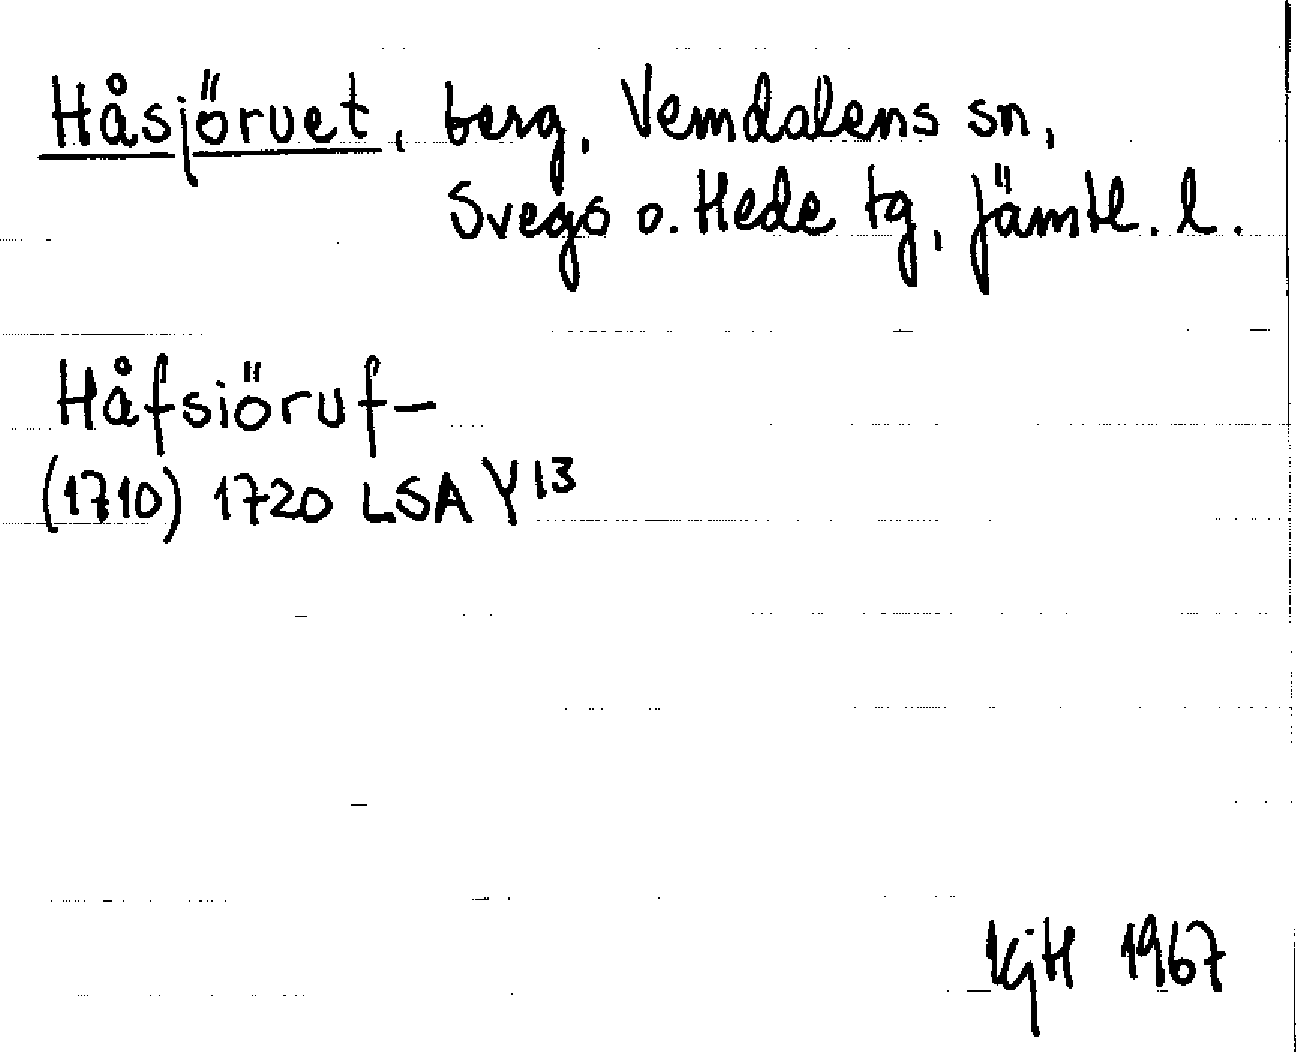 Håsjöruet, berg, Vemdalens sn,
Svegs o. Hede tg, Jämtl. l.
Håfsiöruf-
(1710) 1720 LSA Y13
KjH 1967